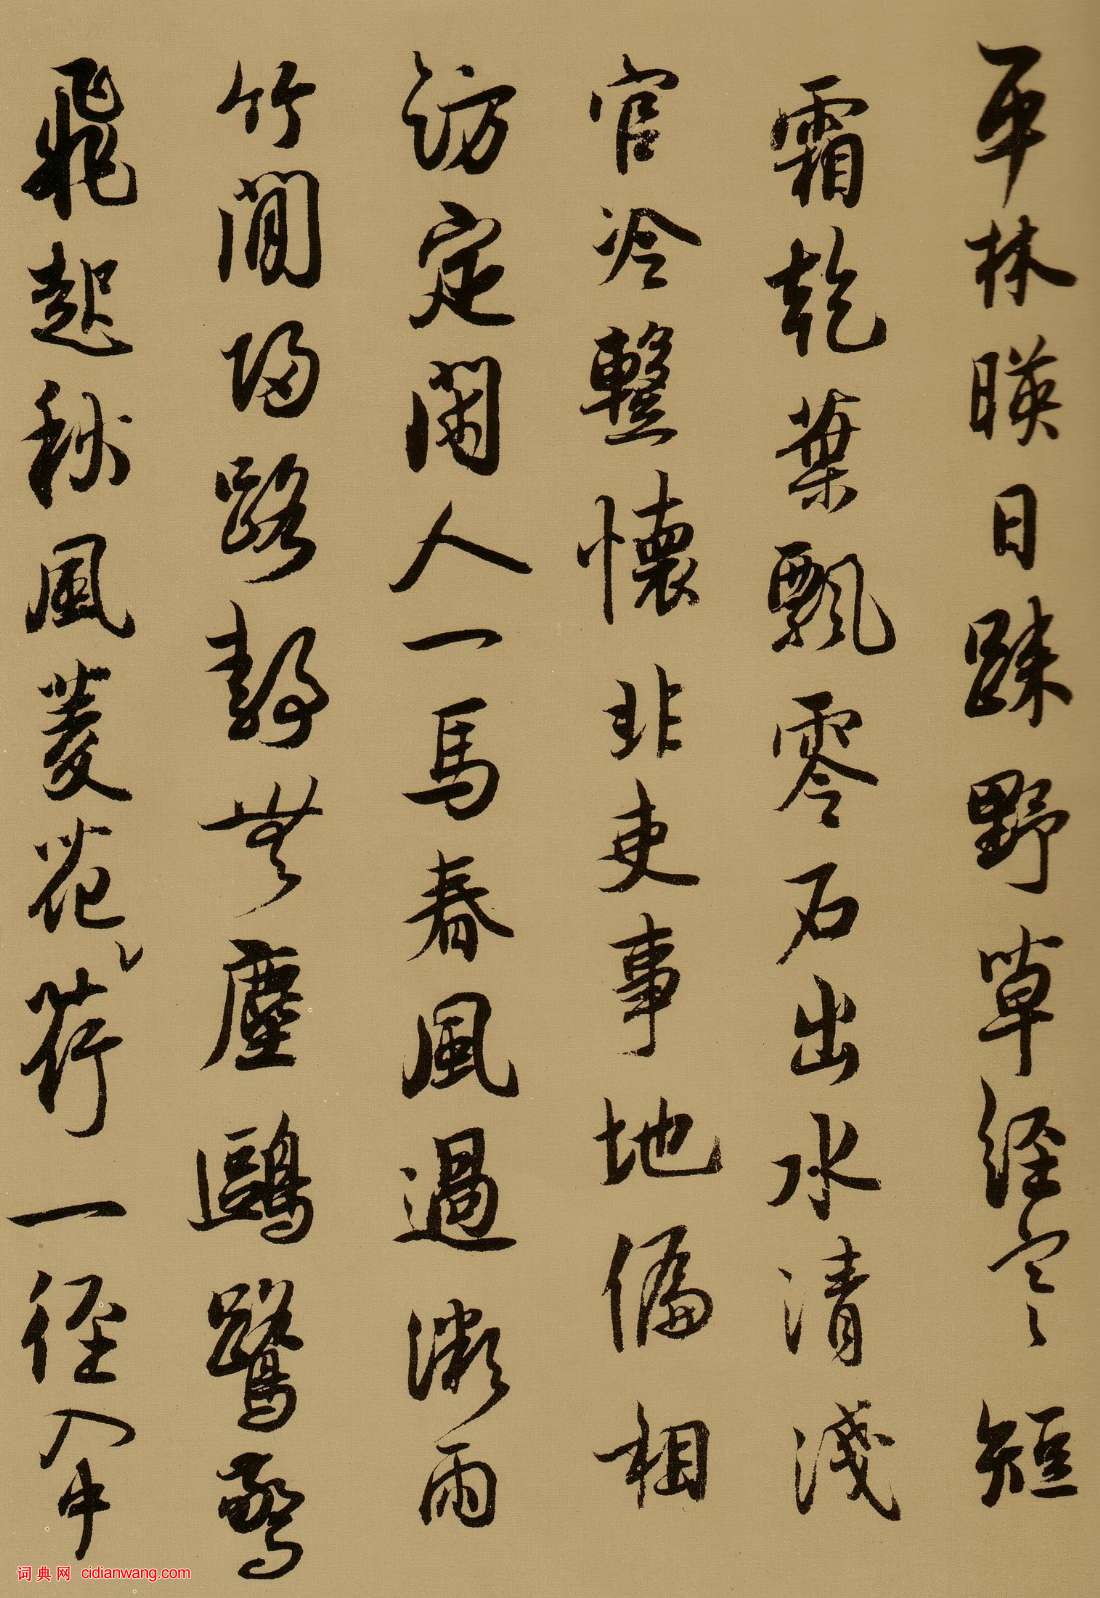 平林暎日踈野草經寒短
霜乾葉飄零石出水清淺
官冷繫懷非吏事地偏相
訪定閑人一馬春風過微雨
竹間歸路静無塵鷗鷺驚
飛起秋風菱花荷一徑入中
词典网 cidianwang.com